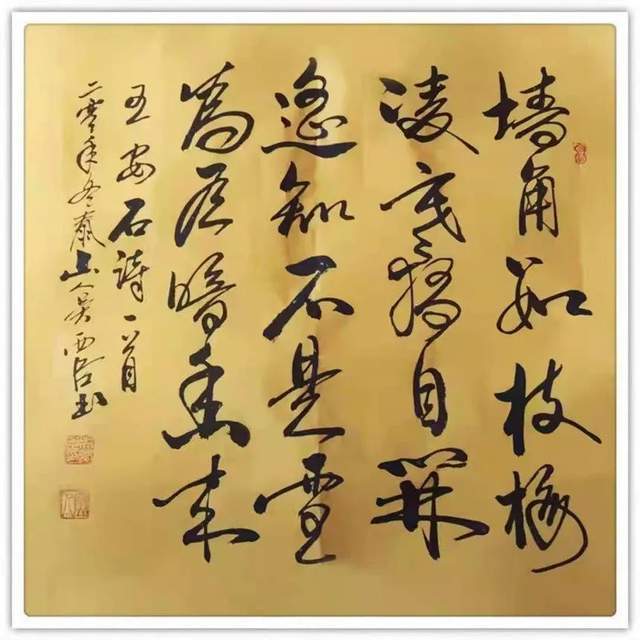 墙角数枝梅
凌寒獨自開
遥知不是雪
為有暗香来
王安石诗一首
二零年冬泰山吴西书